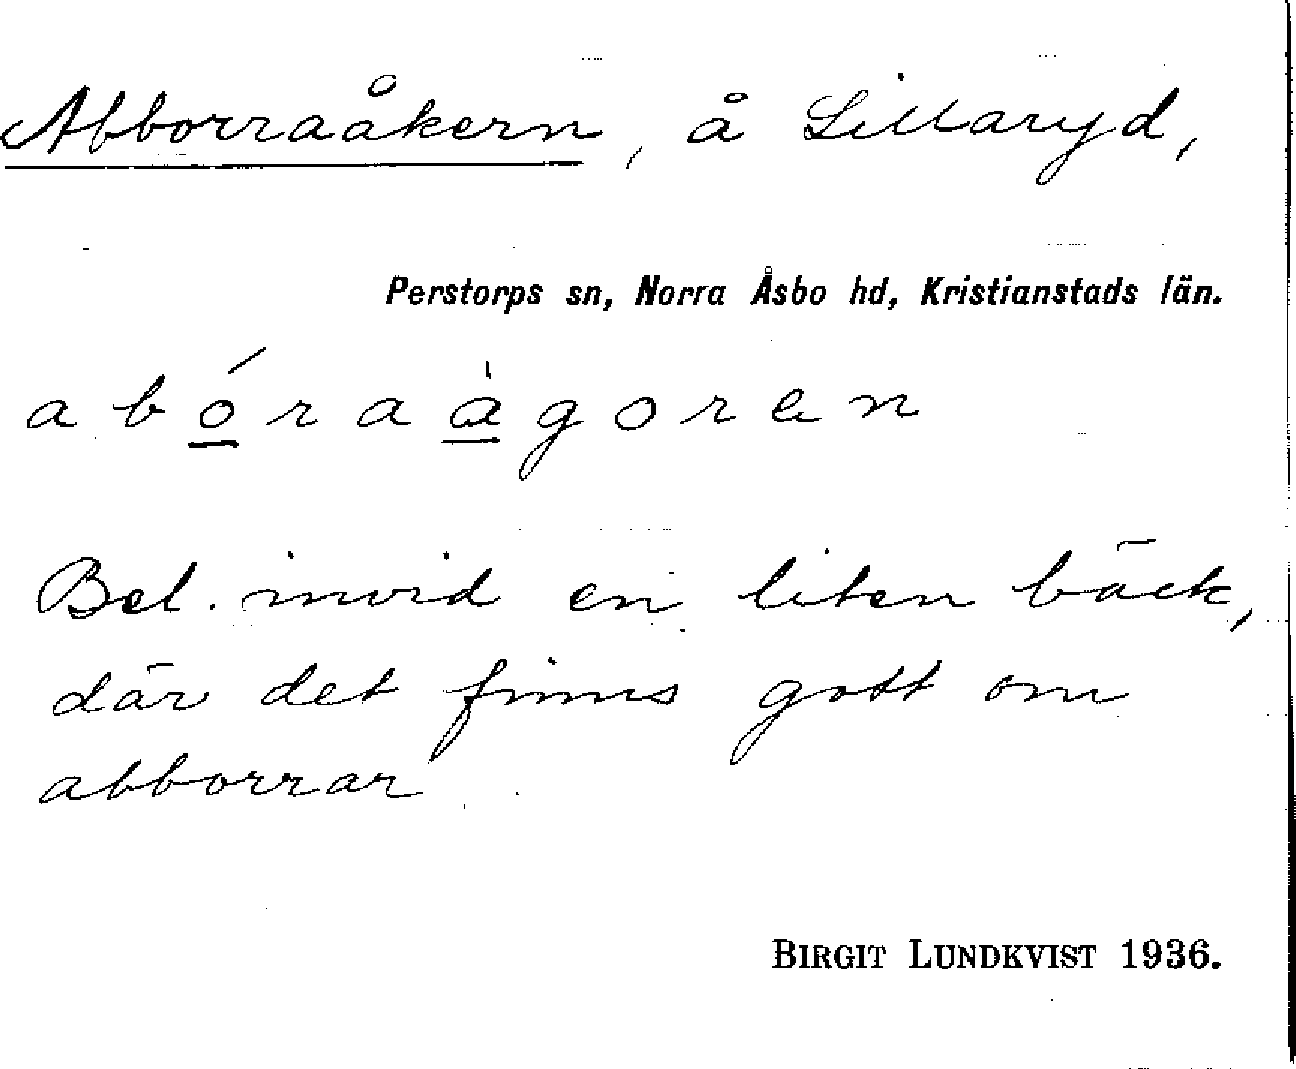 Abborraåkern, å Lillaryd,
Perstorps sn, Norra Åsbo hd, Kristianstads län.
a b ó r a à g o r e n
Bel. invid en liten bäck,
där det finns gott om
abborrar
BIRGIT LUNDKVIST 1936.